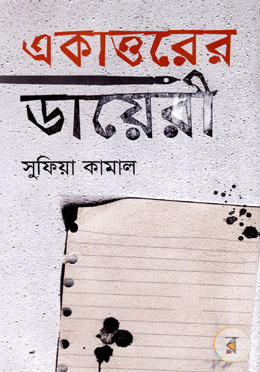 একাত্তরের
ডায়েরী
সুফিয়া কামাল